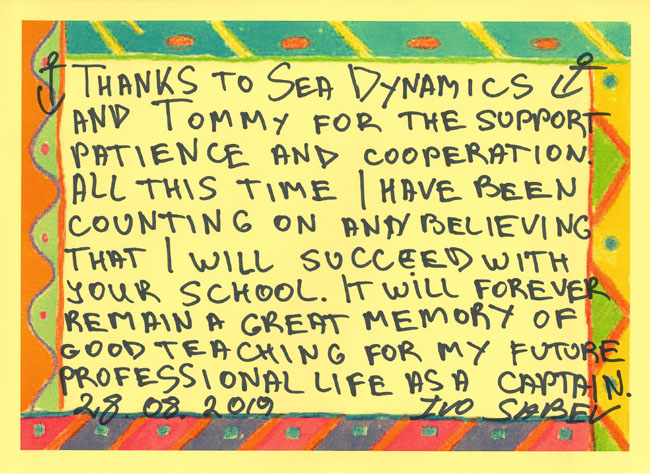 THANKS TO SEA DYNAMICS
AND TOMMY FOR THE SUPPORT
PATIENCE AND COOPERATION.
ALL THIS TIME I HAVE BEEN
COUNTING ON AND BELIEVING
THAT I WILL SUCCEED WITH
YOUR SCHOOL. IT WILL FOREVER
REMAIN A GREAT MEMORY OF
GOOD TEACHING FOR MY FUTURE
PROFESSIONAL LIFE AS A CAPTAIN.
28.08.2019 IVO